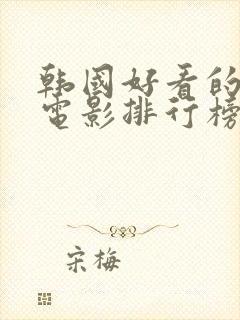 韩國好看的
電影排行榜
宋梅